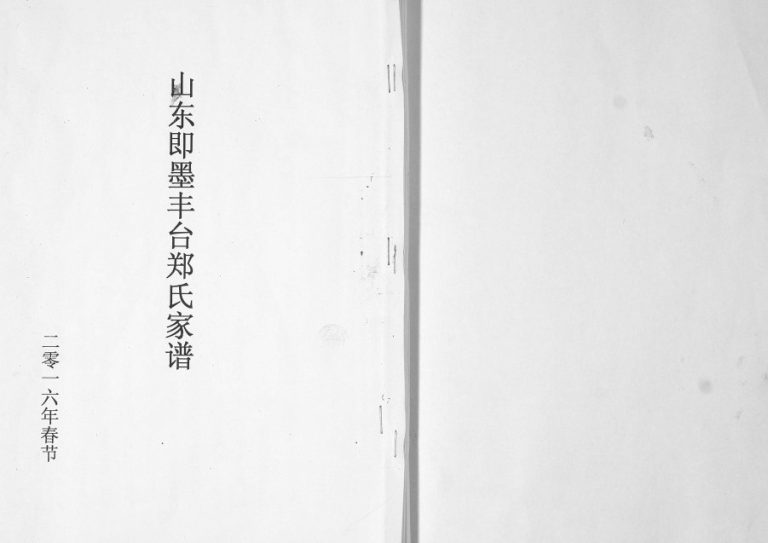 山东即墨丰台郑氏家谱
二零一六年春节